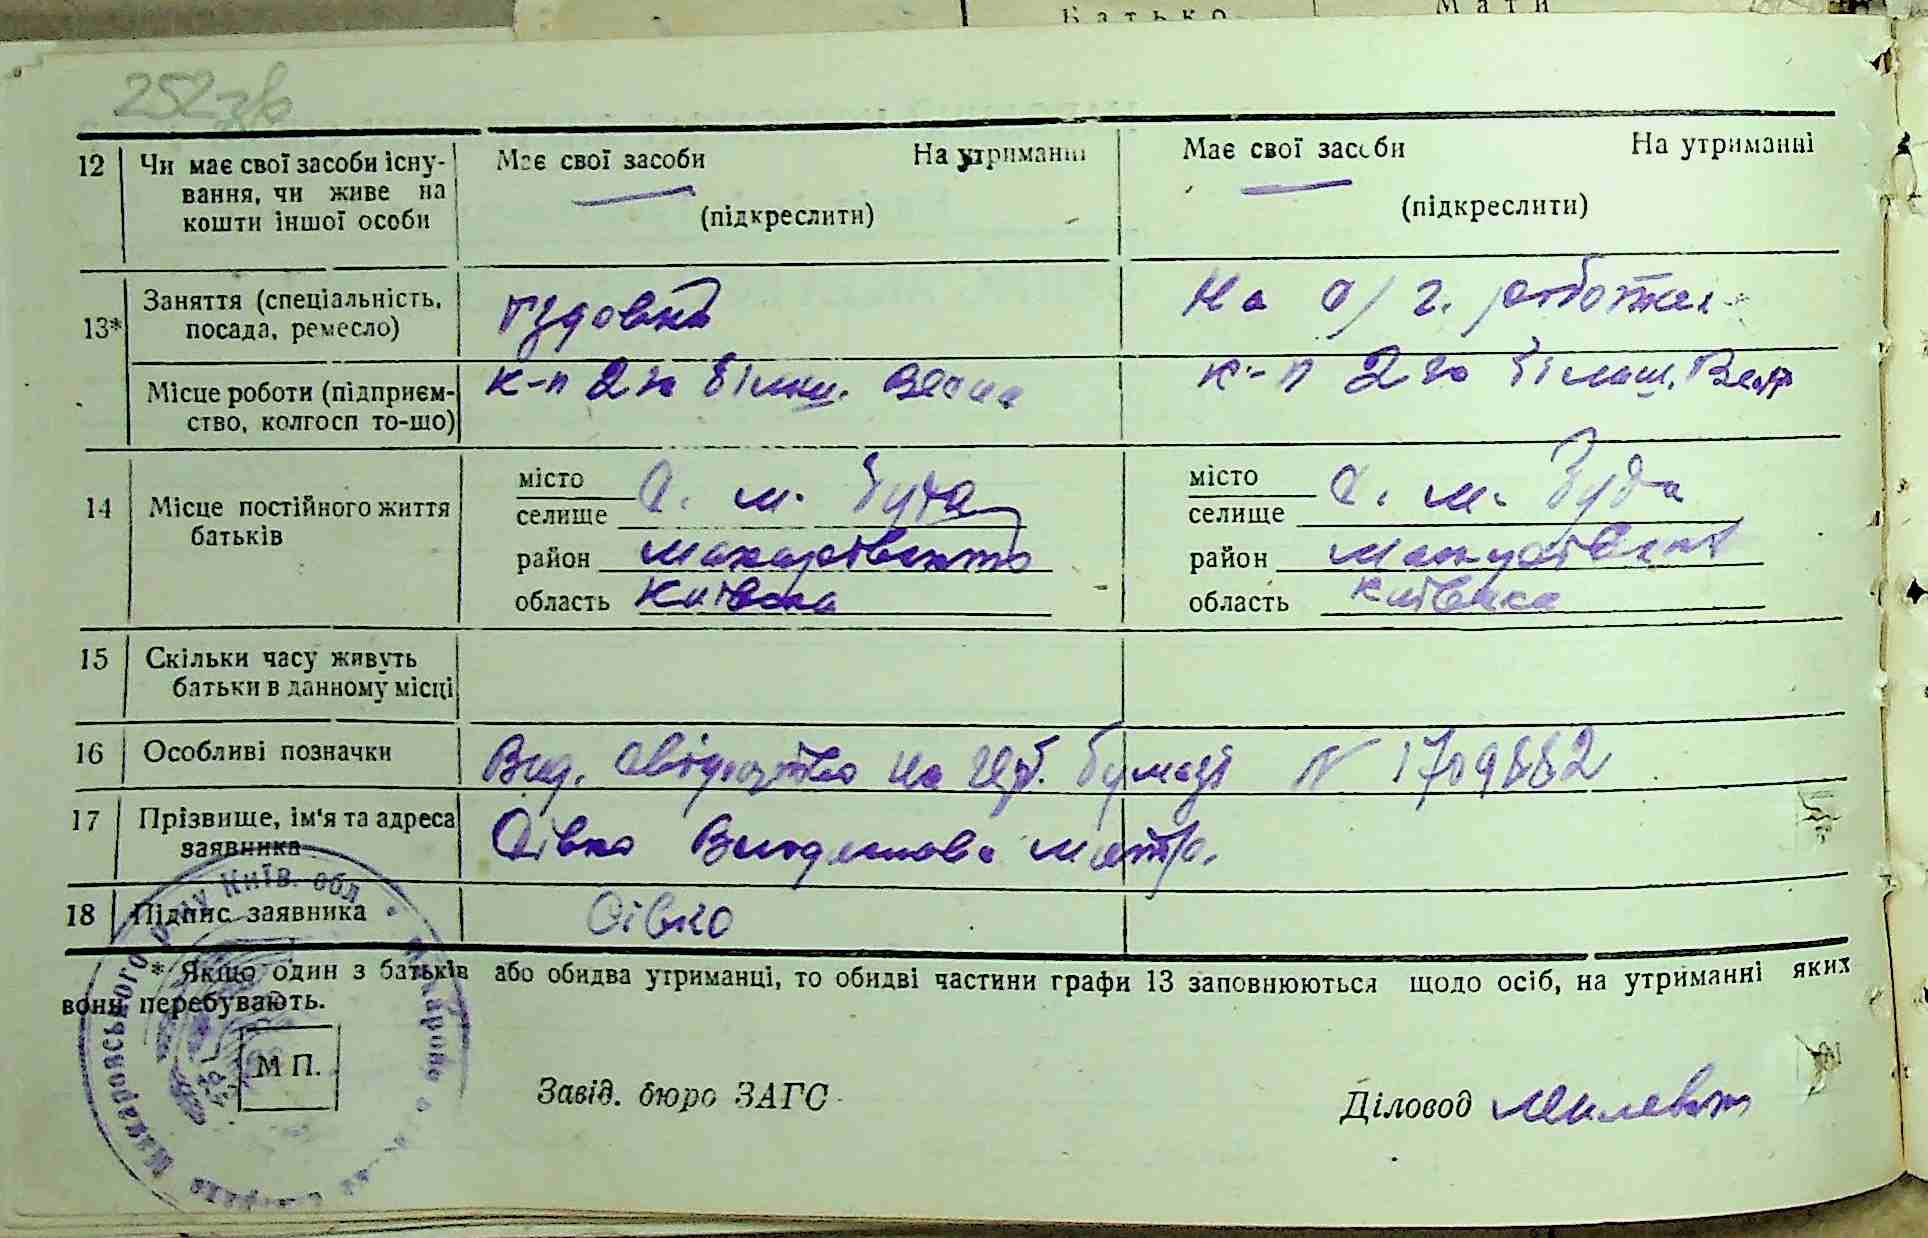 Батько Мати
252зв
12 Чи має свої засоби існу- Має свої засоби На утриманні Має свої засоби На утриманні
вання, чи живе на
кошти іншої особи (підкреслити) (підкреслити)
13* Заняття (спеціальність, На с/г. роботах
посада, ремесло)
Місце роботи (підприєм- к-п 2га більш. Весна к-п 2га більш. Весна
ство, колгосп то-що)
14 Місце постійного життя місто С. м. Буда місто С. м. Буда
батьків селище селище
район Макарівського район Макарівськ
область Київська область Київська
15 Скільки часу живуть
батьки в данному місці
16 Особливі позначки Вид. свідоцтво на герб. бумазі N 1709882
17 Прізвище, ім'я та адреса Сівко
заявника
18 Підпис заявника Сівко
* Якщо один з батьків або обидва утриманці, то обидві частини графи 13 заповнюються щодо осіб, на утриманні яких
вони перебувають.
Макаровського р-ну Київ. обл.
М П.
Завід. бюро ЗАГС
Діловод